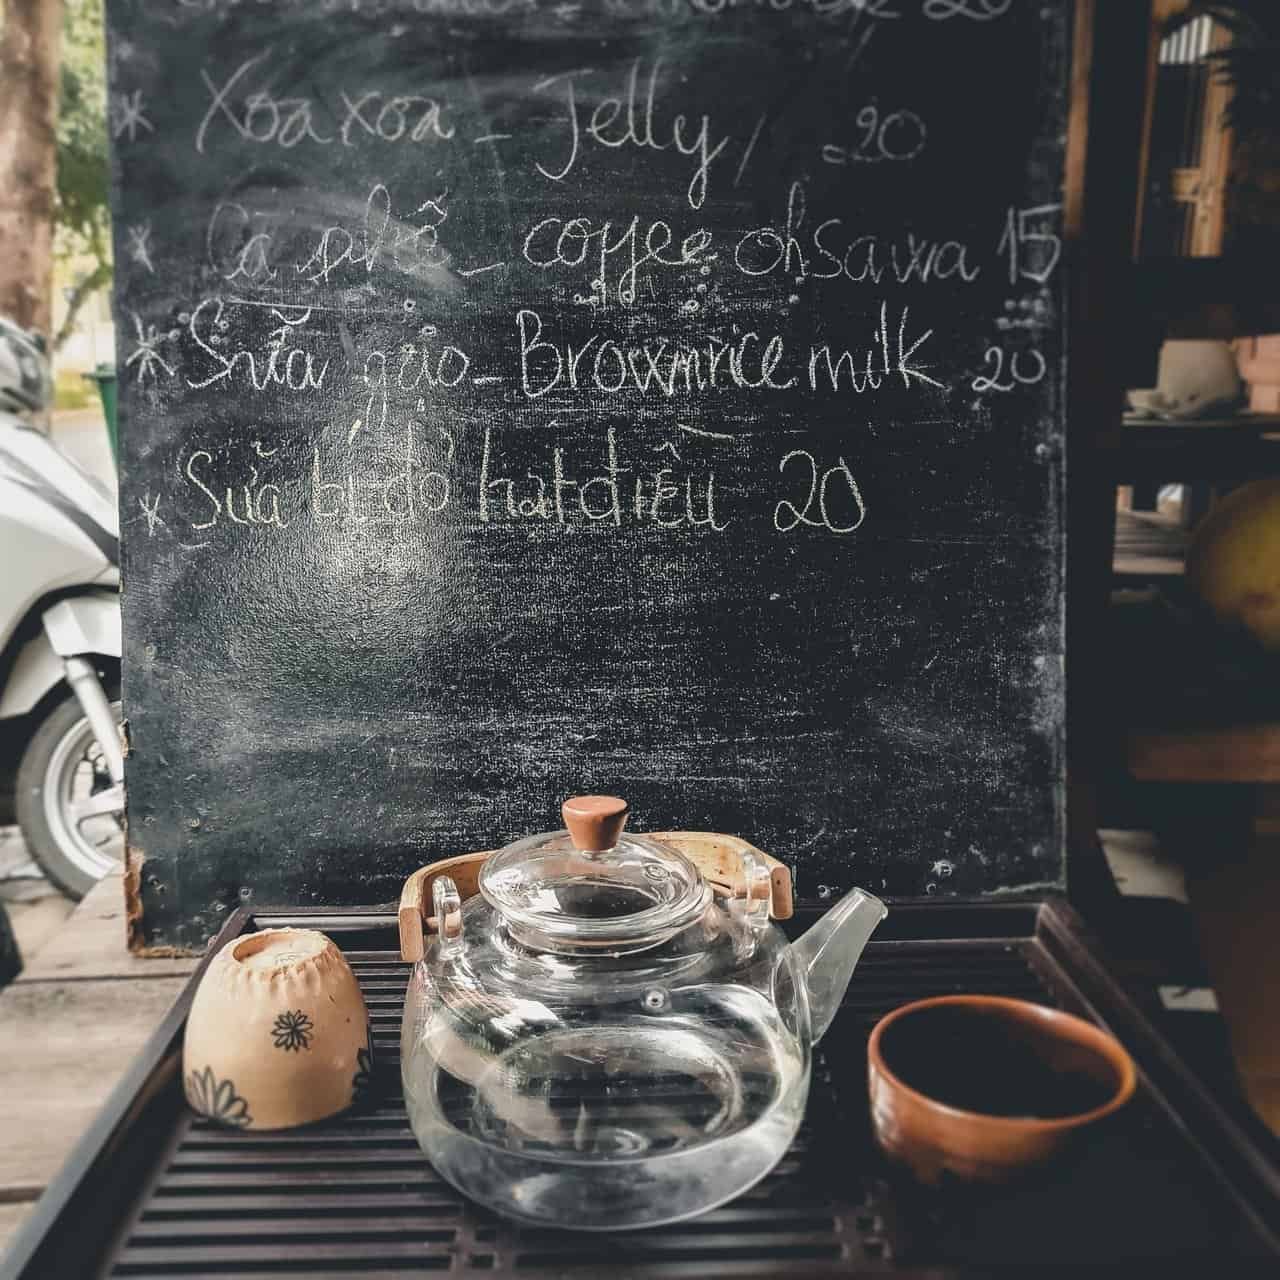 20
* Xoa xoa - Jelly / 20
* Cà phê - coffee ohsawa 15
* Sữa gạo - Brownrice milk 20
* Sữa bí đỏ hạt điều 20